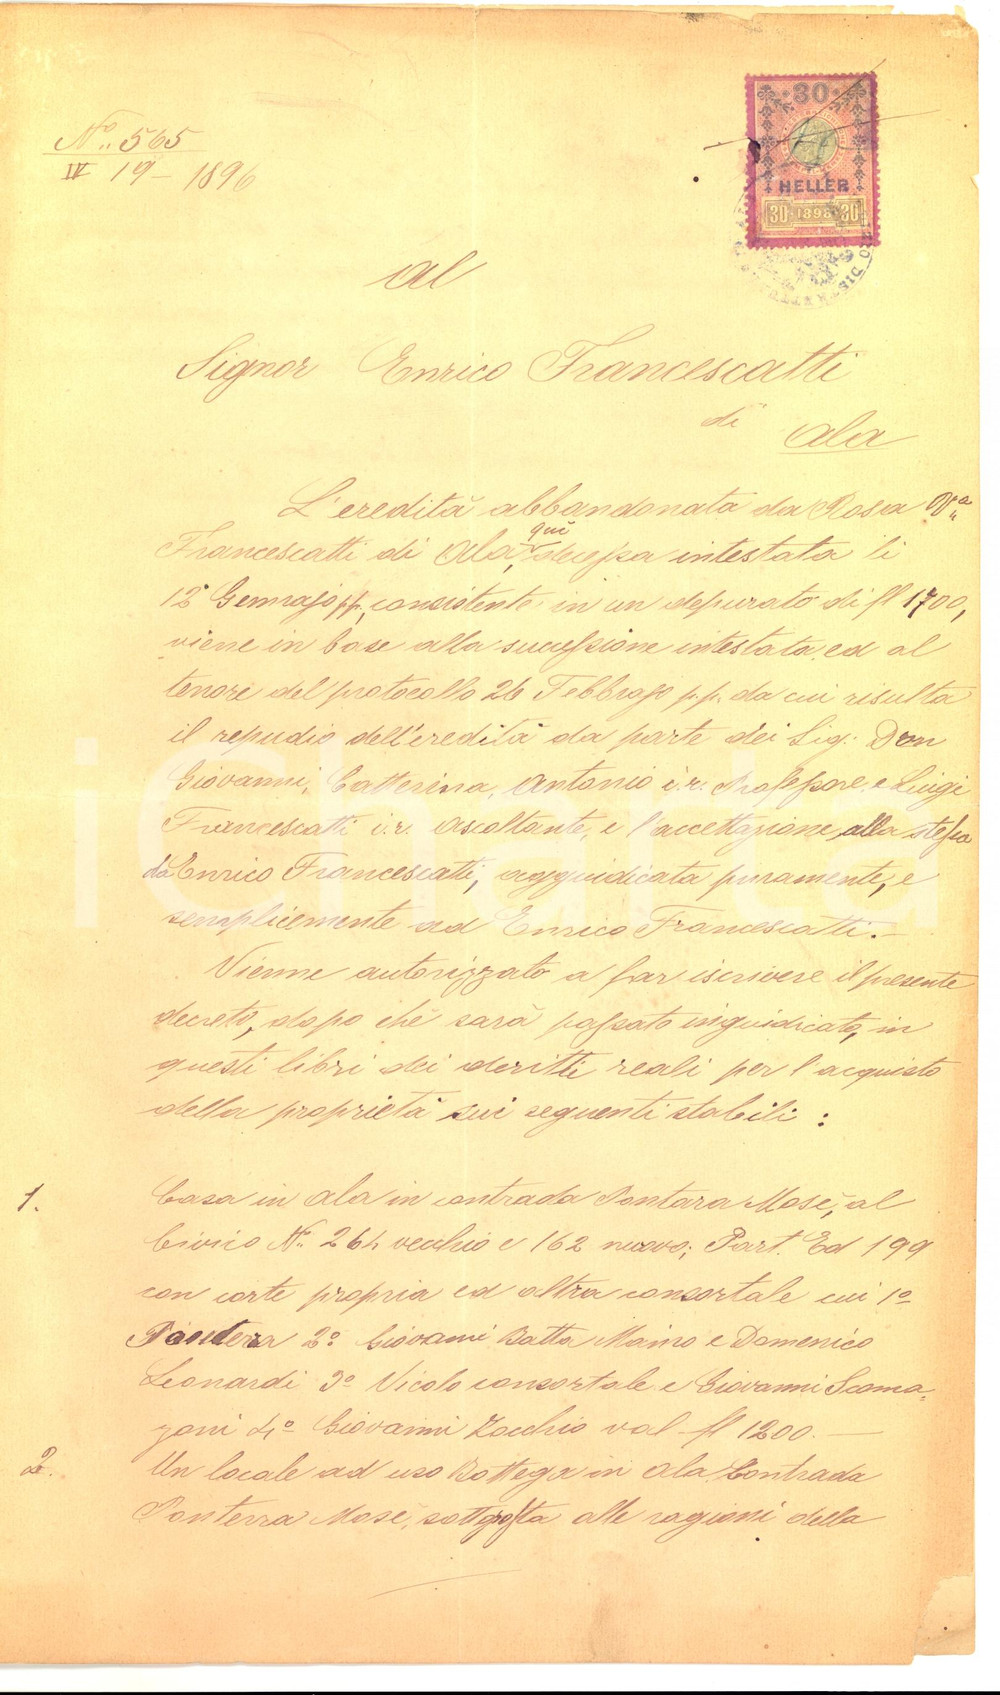 N.º 565
IV 19 - 1896
30
HELLER
30 1898 30
Al
Signor Enrico Francescatti
di Ala
L'eredità abbandonata da Rosa V.a
Francescatti di Ala, quì decessa intestata li
12 Gennajo pp., consistente in un depurato di fl 1700,
viene in base alla successione intestata ed al
tenore del protocollo 26 Febbrajo p.p. da cui risulta
il repudio dell'eredità da parte dei Sig. Don
Giovanni, Catterina, Antonio i.r. Professore e Luigi
Francescatti i.r. Ascoltante, e l'accettazione alla stessa
da Enrico Francescatti, aggiudicata puramente, e
semplicemente ad Enrico Francescatti. -
Vienne autorizzato a far iscrivere il presente
decreto, dopo chè sarà passato ingiudicato, in
questi libri dei deritti reali per l'acquisto
della proprietà sui seguenti stabili :
1. Casa in Ala in contrada Pontara Mosè, al
Civico N. 264 vecchio e 162 nuovo; Part. Ed 199
con corte propria ed altra consortale cui 1º
Pontera 2º Giovanni Batta Maino e Domenico
Leonardi 3º Vicolo consortale e Giovanni Scoma=
zoni 4º Giovanni Zocchio val - fl 1200. —
2. Un locale ad uso Bottega in Ala Contrada
Ponterra Mosè, sottoposta alle ragioni della
iCharta